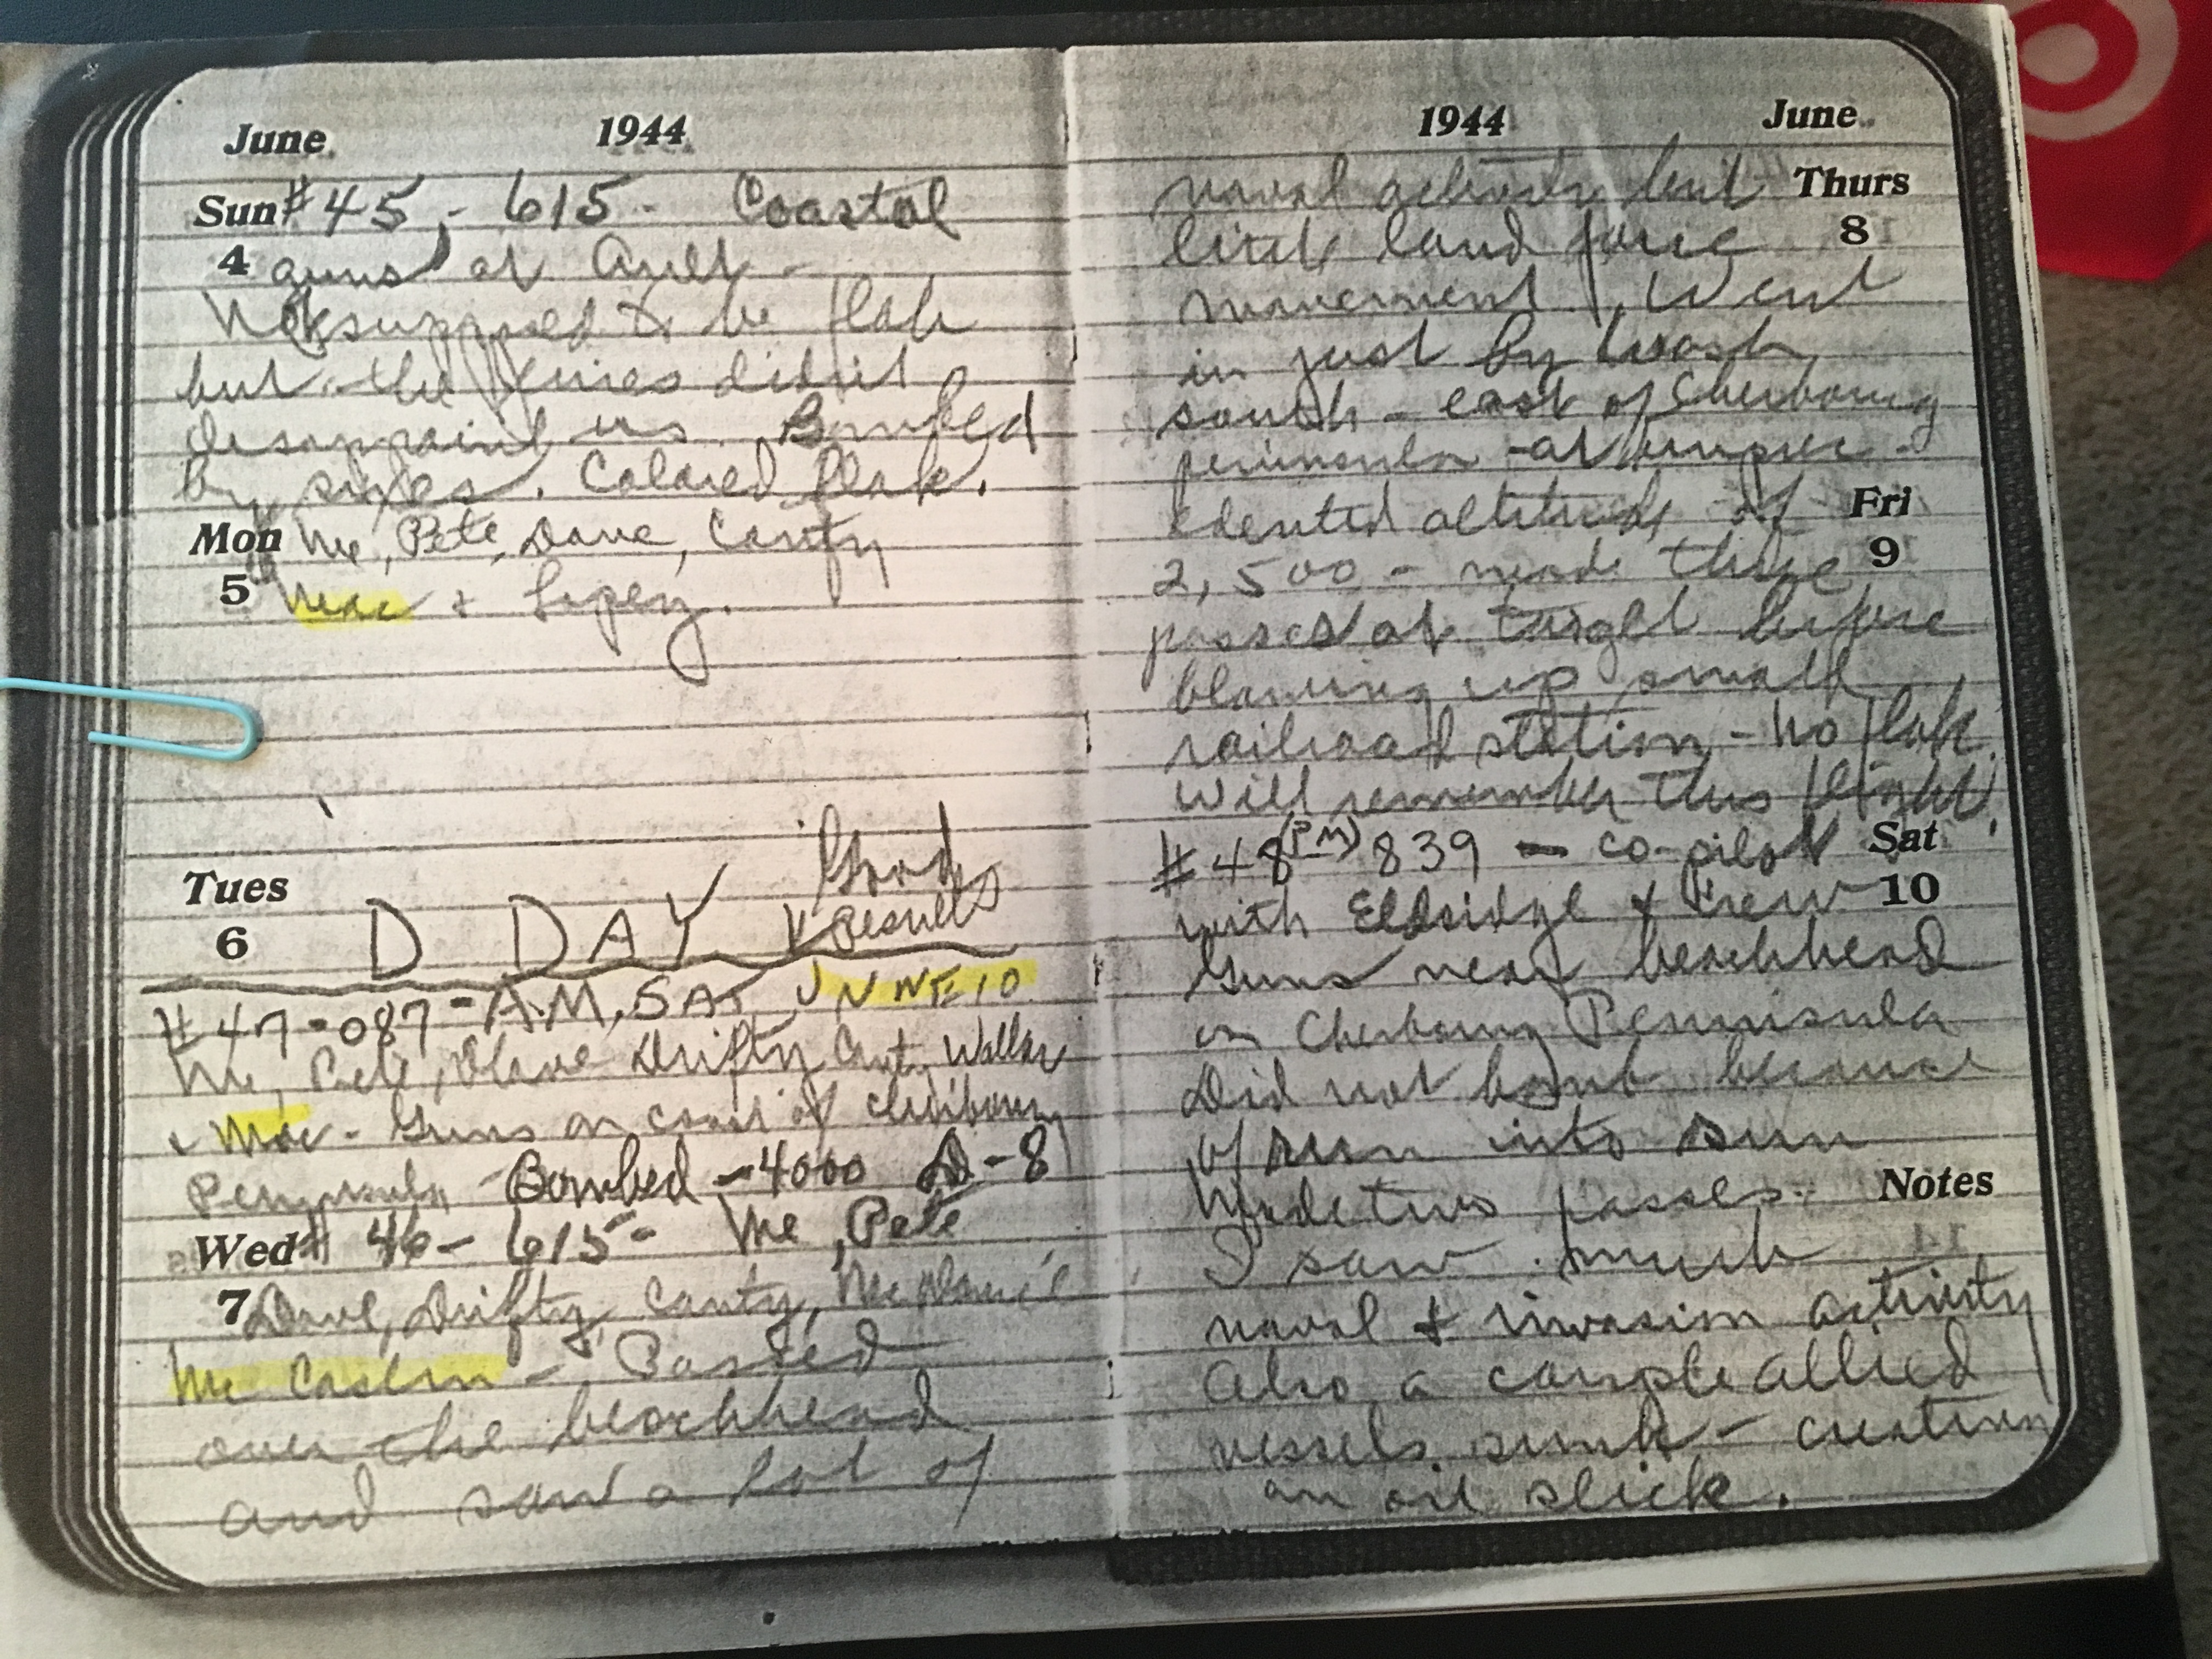 June 1944
Sun #45 - 615 - Coastal
4 guns at Ault -
Not supposed to be flak
but the Jerries didn't
disappoint us. Bombed
by sixes. Colored flak.
Mon Me, Pete, Dave, Canty
5 Mac & Lopez.
Good
Tues D DAY Results
6
#47-087-A.M, SAT JUNE 10
Me, Pete, Dave Drifty Canty Wallar
& Mac - Guns on coast of Cherbourg
Peninsula - Bombed - 4000 D-8
Wed # 46 - 615 - Me, Pete
7 Dave, Drifty, Canty,
Mc Caslin - Passed
over the beachhead
and saw a lot of
1944 June
naval activity but Thurs
little land force 8
movement. Went
in just by coast
south - east of Cherbourg
peninsula - at unprec -
edented altitude of Fri
2,500 - made three 9
passes at target before
blowing up small
railroad station - no flak.
Will remember this flight!
#48 (PM) 839 - co-pilot Sat
with Eldridge & Crew 10
Guns near beachhead
on Cherbourg Peninsula
Did not bomb because
of run into sun
Made two passes. Notes
I saw much
naval & invasion activity
Also a couple allied
vessels sunk - creating
an oil slick.